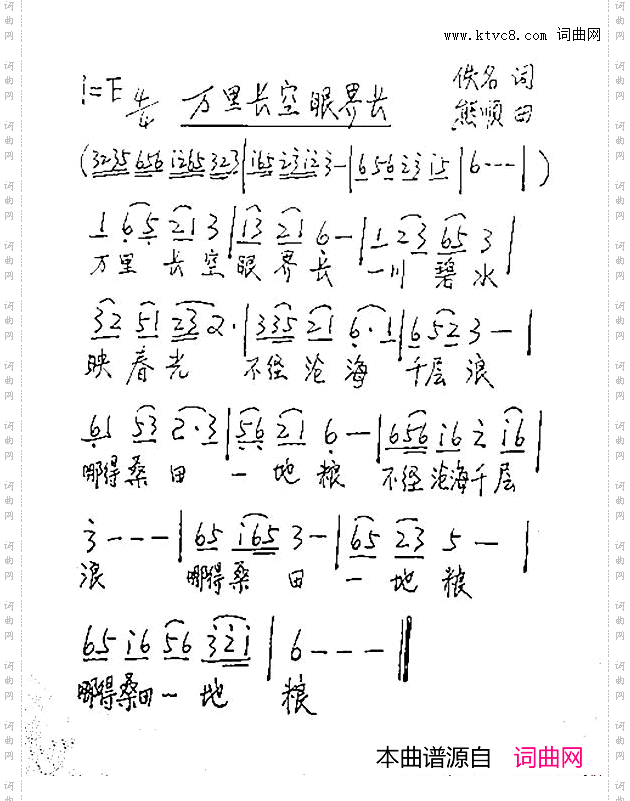 www.ktvc8.com 词曲网
1=E 4/4 万里长空眼界长 佚名 词
熊顺 曲
(3235 656 i265 323 | i65 23i2 3 - | 6 56 23 i5 | 6 - - - | )
1 65 21 3 | 13 21 6 - | 1 23 65 3 |
万里 长空眼界长 一川 碧水
32 51 23 2· | 335 21 6·1 | 6 52 3 - |
映春光 不经沧海 千层浪
61 53 2·3 | 56 21 6 - | 656 i6 2 i6 |
哪得桑田 一地粮 不经沧海千层
3 - - - | 65 i65 3 - | 65 23 5 - |
浪 哪得桑田 一地粮
65 i6 56 32i | 6 - - - ||
哪得桑田一地 粮
本曲谱源自 词曲网